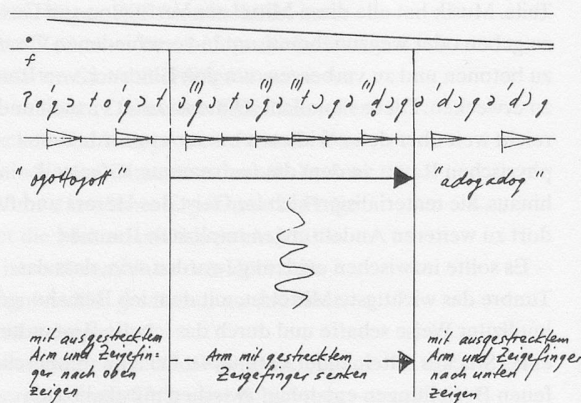 f
"ogottogott" "adogadog"
mit ausgestrecktem
Arm und Zeigefin-
ger nach oben
zeigen
Arm mit gestrecktem
Zeigefinger senken
mit ausgestrecktem
Arm und Zeigefinger
nach unten
zeigen